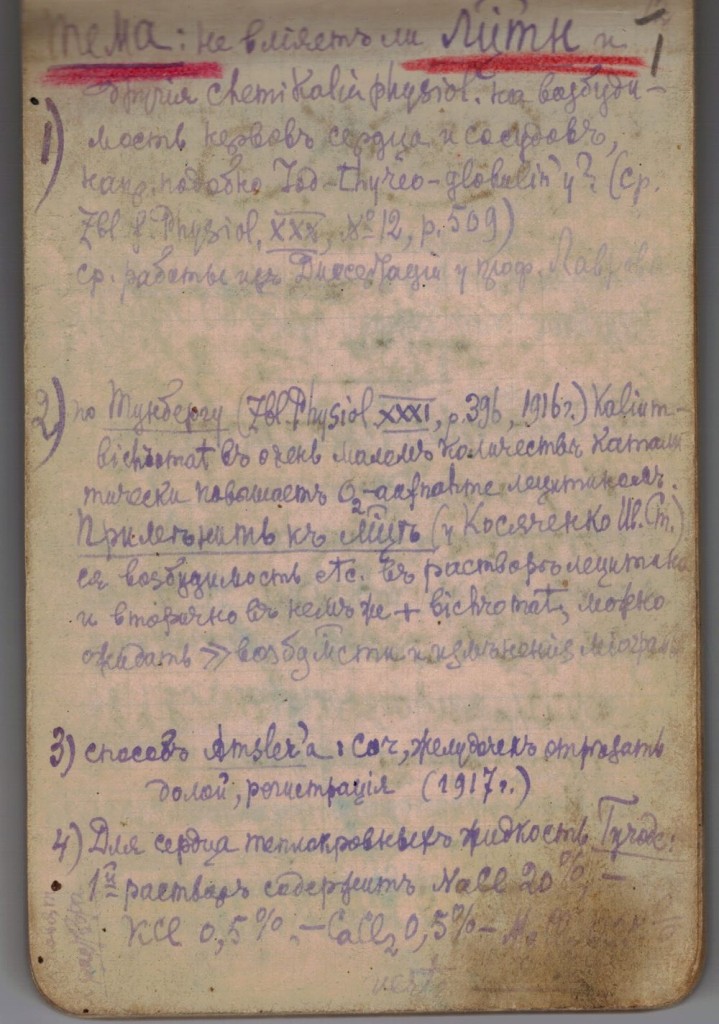 Тема: не вліяетъ ли Лİитн и 1
другія chemikalia physiol. на возбуди-
1) мость нервовъ сердца и сосудовъ,
напр. подобно Jod-thyreo-globulin'у? (ср.
Zbl f. Physiol, XXX, №12, p. 509)
ср. работы изъ Диссертаціи у проф.
2) по Тунбергу (Zbl Physiol XXXI, p. 396, 1916г.) Kalium-
bichromat въ очень маломъ количествѣ катали
тически повышаетъ O2- лецитиномъ.
Примѣнить къ (у Косяченко
ся возбудимость etc. въ растворѣ лецитина
и вторично въ немъ же + bichromat, можно
ожидать >> возбудмсти и измѣненія
3) способъ Amsler'a: Cor, желудочекъ отрѣзать
долой, регистрація (1917г.)
4) Для сердца теплокровныхъ жидкость
1 растворъ содержитъ NaCl 20%, —
KCl 0,5%, — CaCl2 0,5% —